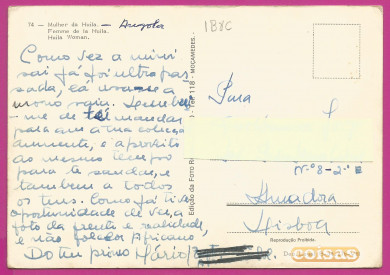 74 — Mulher da Huila. — Angola
Femme de la Huila.
Huila Woman.
Como vez a mini
saia já foi ultrapas
sada, cá usa-se a
mono saia. Lembrei-
-me de te mandar
para que a tua coleção
aumente, e a propósito
ao mesmo tempo
para te saudar, e
tambem a todos
os teus. Como já tive
oportunidade de ver, a
foto da frente é realidade,
e não folclor Africano.
Do teu primo Mário
Edição da Foto
118 - MOÇAMEDES.
Nº 8-2º E
Amadora
Lisboa
Reprodução Proibida.
coisas